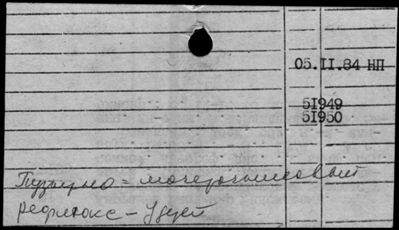 05.II.84 НП
5I949
5I950
Пузырно-мочеточниковый
рефлюкс - у детей